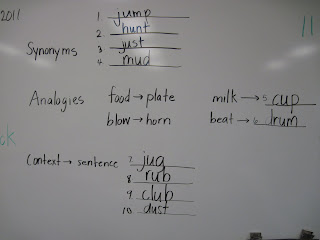 2011
11
Synonyms
1 jump
2 hunt
3 just
4 mud
Analogies food → plate milk → 5 cup
blow → horn beat → 6 drum
ck
Context → sentence 7 jug
8 rub
9 club
10 dust